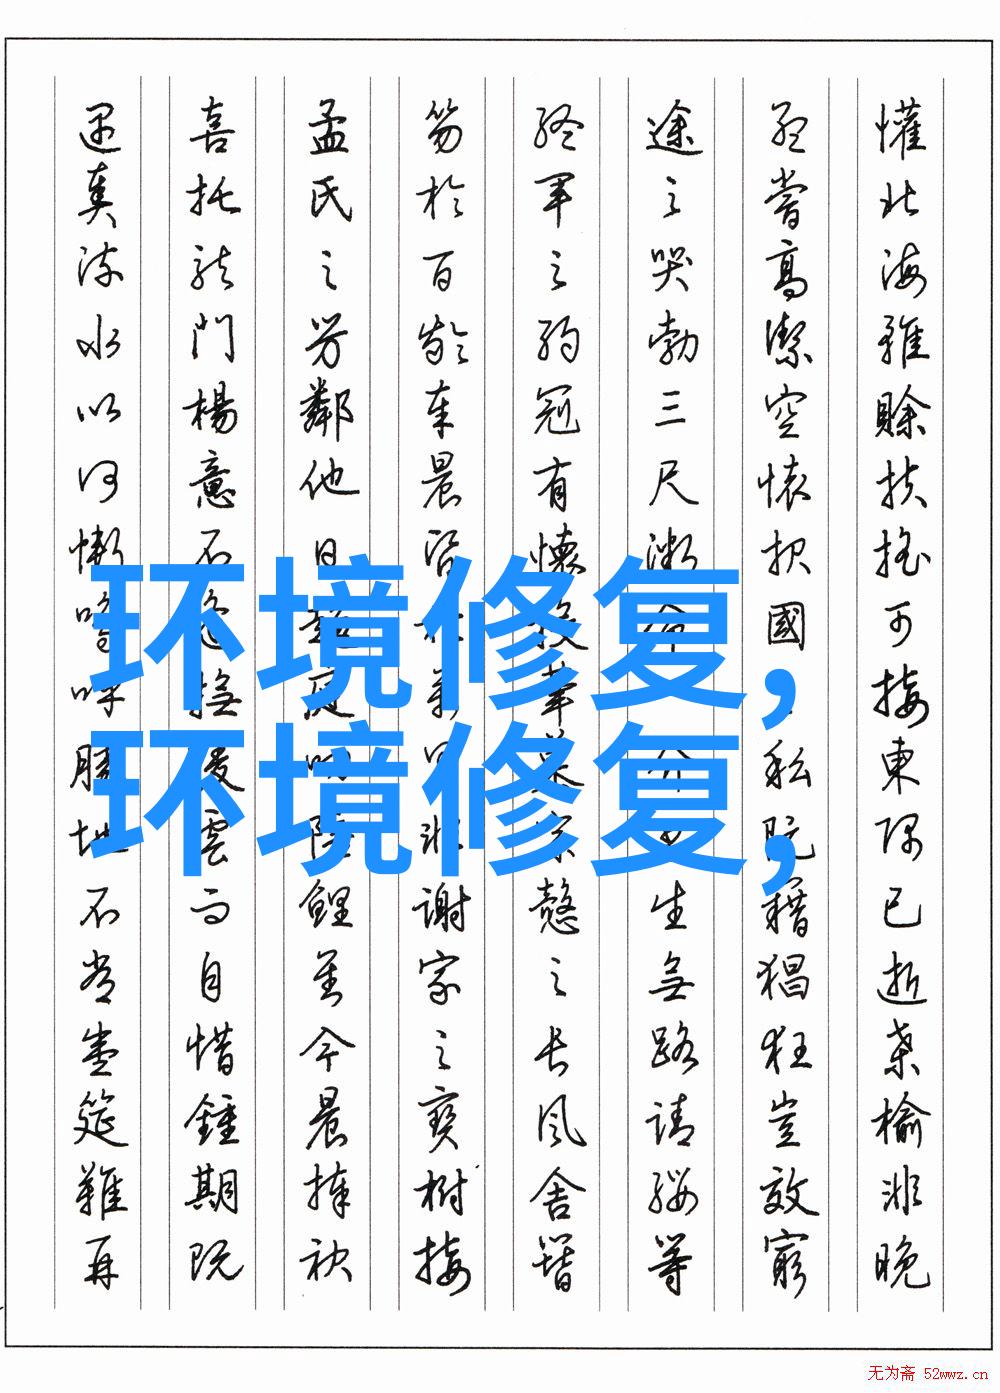 懽北海雖賒扶搖可接東隅已逝桑榆非晚
孟嘗高潔空懷报國私阮籍猖狂豈效窮
途之哭勃三尺微命介生無路請纓等
終軍之弱冠有懷投筆慕宗慤之長風舍簪
笏於百齡奉晨昏於萬里非謝家之寶樹接
孟氏之芳鄰他日趨庭叨陪鯉對今晨捧袂
喜托龍門楊意不逢撫凌雲而自惜鍾期既
遇奏流水以何慚嗚呼勝地不常盛筵難再
环境修复,
环境修复,
无为斋 52wwz.cn